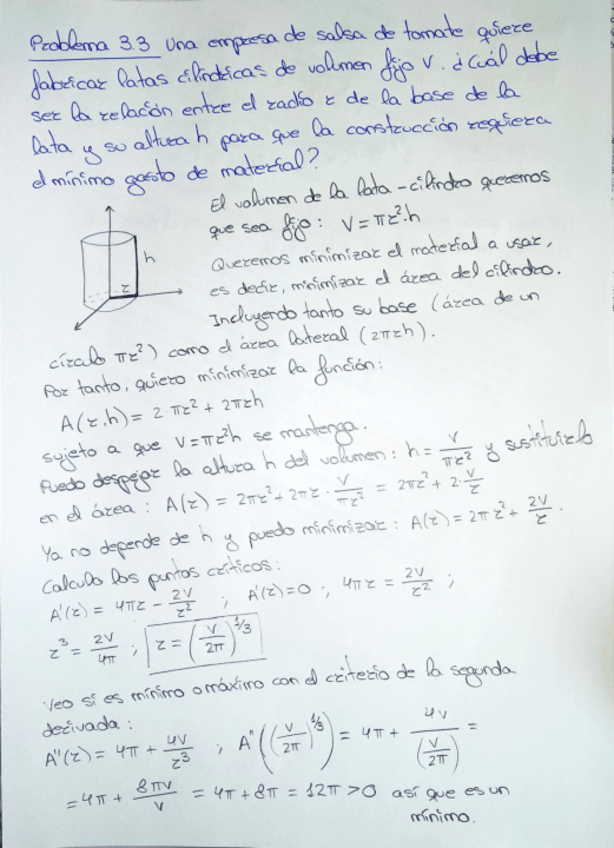 Problema 3.3 Una empresa de salsa de tomate quiere
fabricar latas cilíndricas de volumen fijo V. ¿Cuál debe
ser la relación entre el radio r de la base de la
lata y su altura h para que la construcción requiera
el mínimo gasto de material?
El volumen de la lata-cilindro queremos
que sea fijo: V = πr²·h
h
r
Queremos minimizar el material a usar,
es decir, minimizar el área del cilindro.
Incluyendo tanto su base (área de un
círculo πr²) como el área lateral (2πrh).
Por tanto, quiero minimizar la función:
A(r,h) = 2·πr² + 2πrh
sujeto a que V=πr²h se mantenga.
Puedo despejar la altura h del volumen: h = V/πr² y sustituirlo
en el área: A(r) = 2πr² + 2πr · V/πr² = 2πr² + 2·V/r
Ya no depende de h y puedo minimizar: A(r) = 2πr² + 2V/r.
Calculo los puntos críticos:
A'(r) = 4πr - 2V/r² ; A'(r)=0 ; 4πr = 2V/r² ;
r³ = 2V/4π ; r = (V/2π)^1/3
Veo si es mínimo o máximo con el criterio de la segunda
derivada:
A''(r) = 4π + 4V/r³ ; A''((V/2π)^1/3) = 4π + 4V/(V/2π) =
= 4π + 8πV/V = 4π + 8π = 12π > 0 así que es un
mínimo.